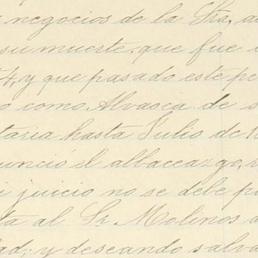 negocios de la Sra, a
su muerte, que fue
4, y que pasado este pe
o como Alvasca de s
taria hasta Julio de 1
uncio el albaceazgo, r
i juicio no se debe p
ta al Sr Molinos
ad; y deseando salva